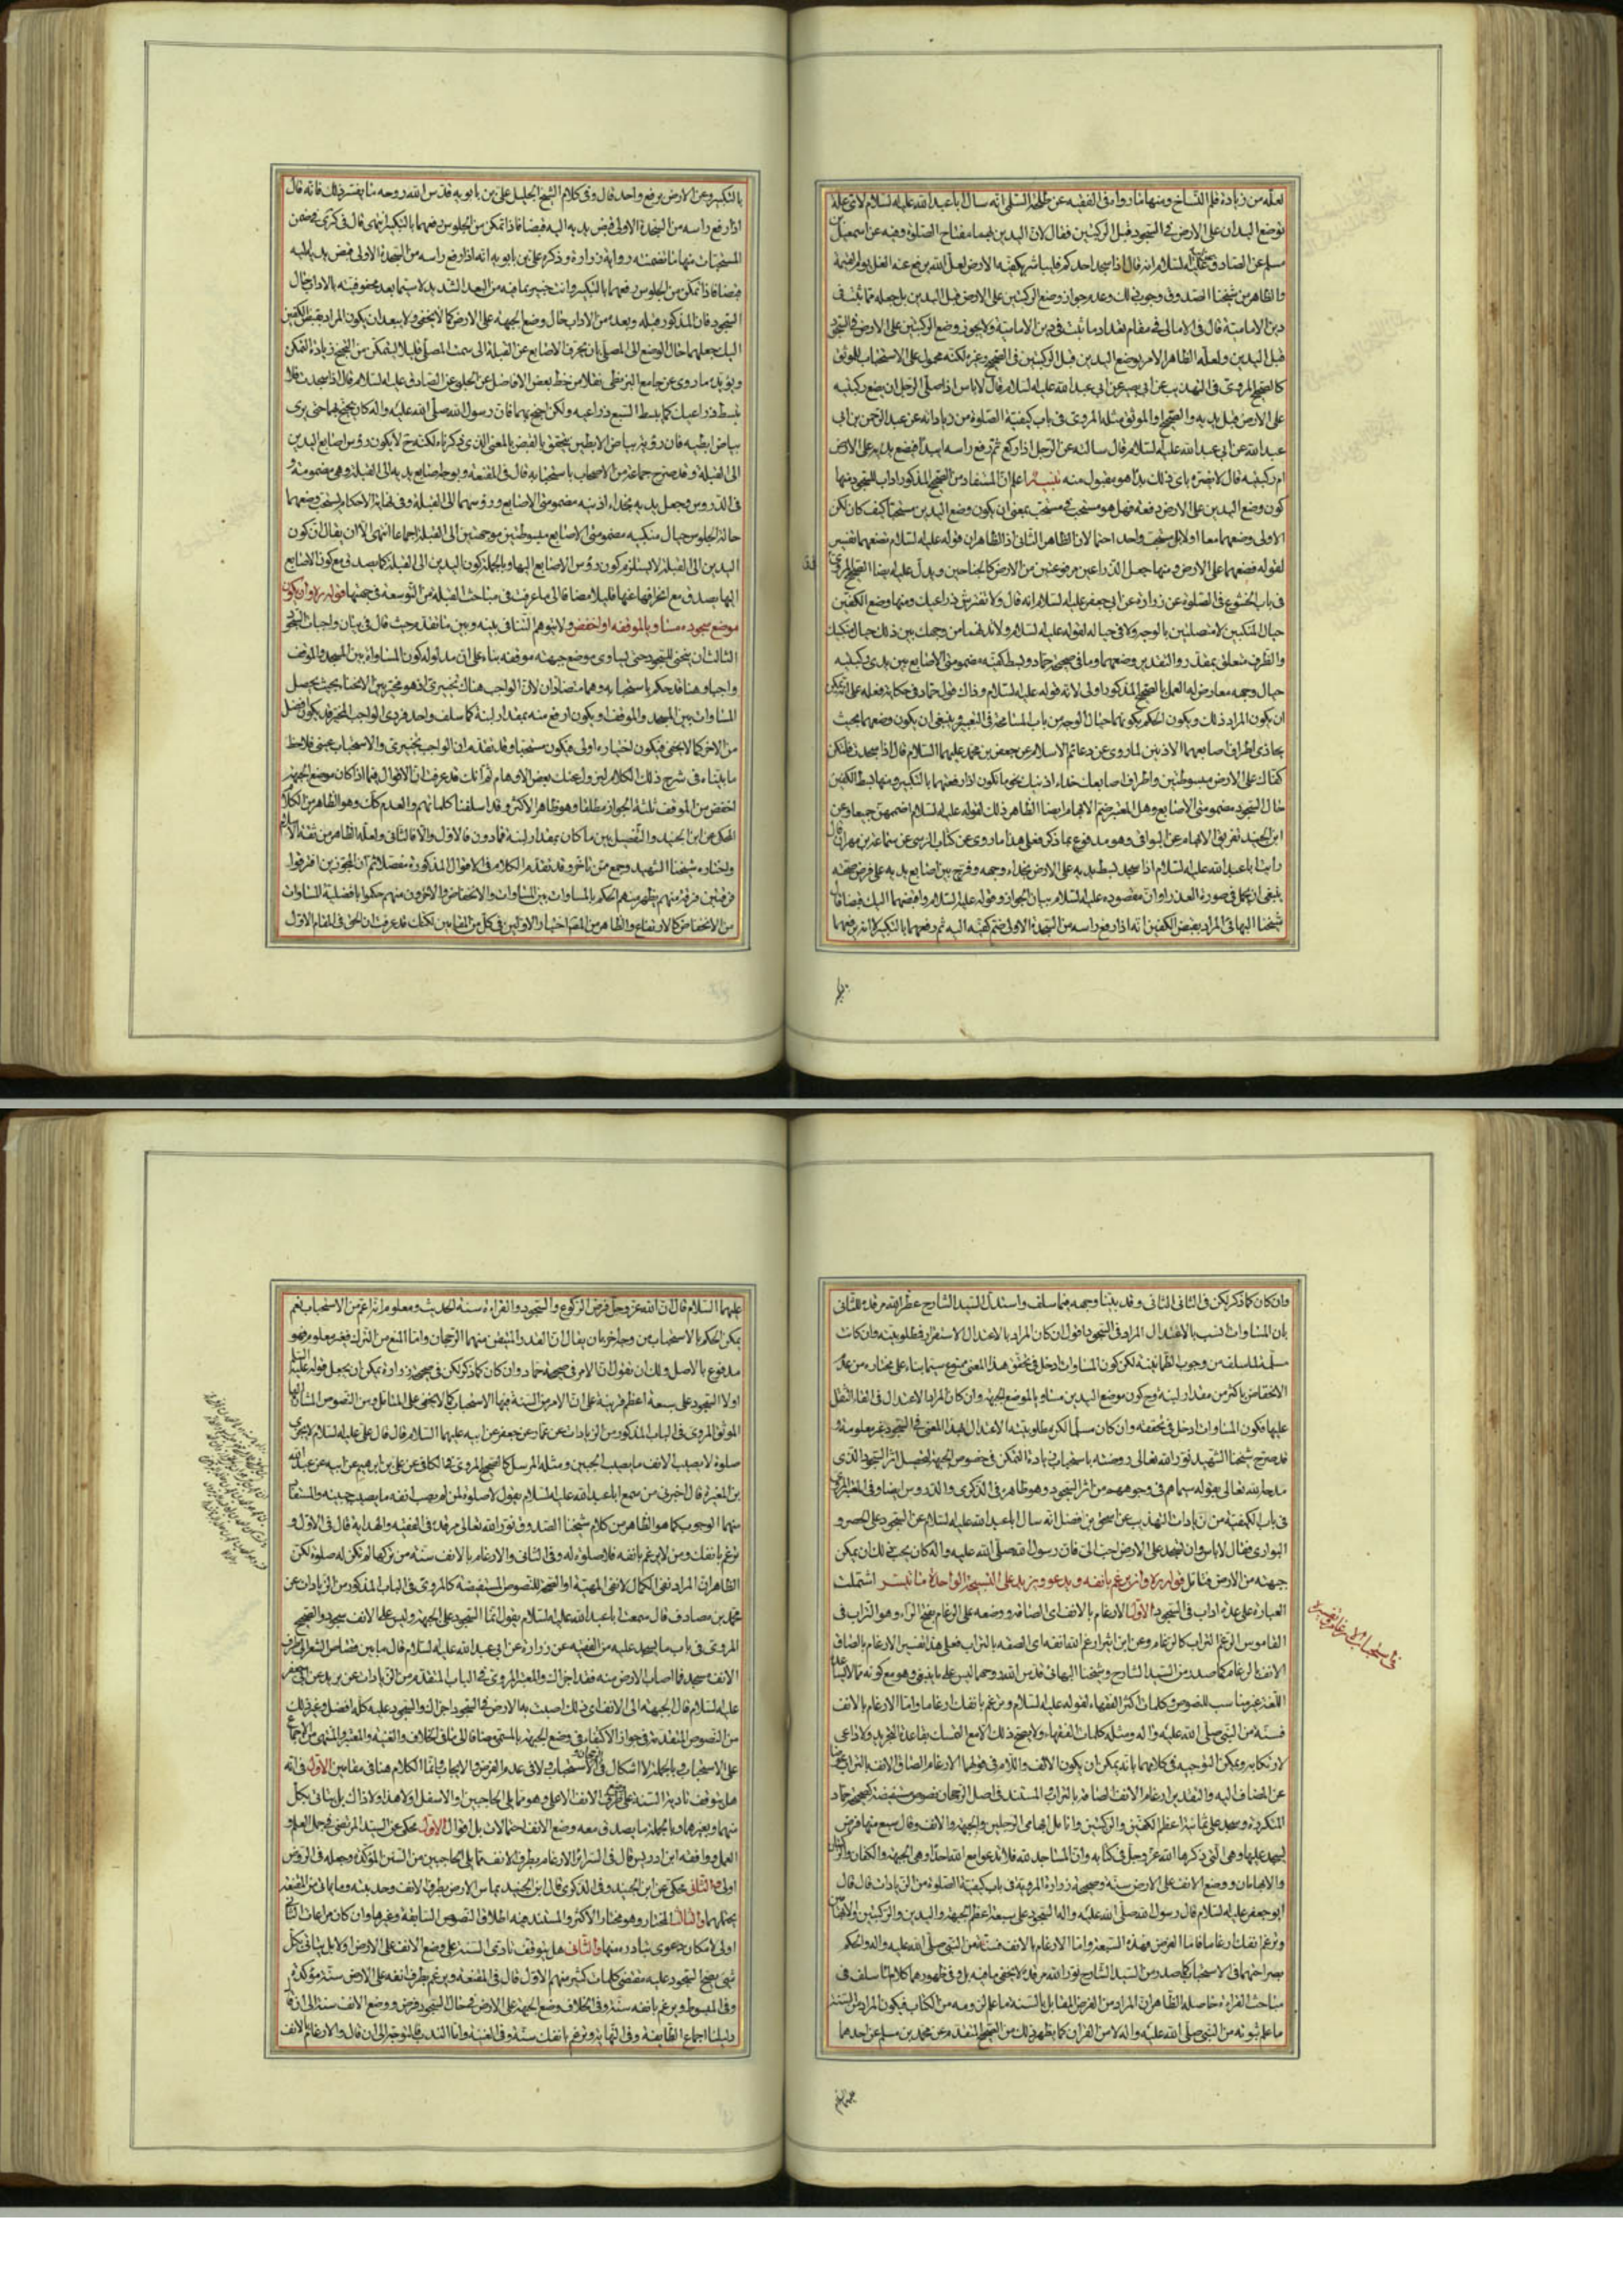 لعله من زيادة قلم النساخ ومنها ما رواه في الفقيه عن طلحة السلمي انه سال ابا عبدالله عليه السلام لاي علة
توضع اليدان على الارض في السجود قبل الركبتين فقال لان اليدين بهما مفتاح الصلوة وفيه عن اسمعيل بن
مسلم عن الصادق عليه السلام انه قال اذا سجد احدكم فليباشر بكفيه الارض لعل الله يدفع عنه الغل يوم القيمة
والظاهر من شيخنا الصدوق وجوب ذلك وعدم جواز وضع الركبتين على الارض قبل اليدين بل جعله مما ثبت في
دين الامامية قال في الامالي في مقام تعداد ما ثبت في دين الامامية ولا يجوز وضع الركبتين على الارض في السجود
قبل اليدين ولعله الظاهر الامر بوضع اليدين قبل الركبتين في الصحيح وغيره لكنه محمول على الاستحباب للموثق
كالصحيح المروي في التهذيب عن ابي بصير عن ابي عبد الله عليه السلام قال لا باس اذا صلى الرجل ان يضع ركبتيه
على الارض قبل يديه والصحيح او الموثق مثله المروي في باب كيفية الصلوة من زياداته عن عبد الرحمن بن ابي
عبد الله عن ابي عبد الله عليه السلام قال سالته عن الرجل اذا ركع ثم رفع راسه ايبدا فيضع يديه على الارض
ام ركبتيه قال لا يضره باي ذلك بدا هو مقبول منه تنبيه اعلم ان المستفاد من الصحيح المذكور اداب للسجود منها
كون وضع اليدين على الارض دفعة فهل هو مستحب في مستحب بمعنى ان يكون وضع اليدين مستحبا كيف كان لكن
الاولى وضعهما معا اولا بل مستحب واحد احتمالان الظاهر الثاني اذ الظاهر ان قوله عليه السلام تضعهما تفسير
لقوله فضعهما على الارض ومنها جعل الذراعين مرفوعتين من الارض كالجناحين ويدل عليه ايضا الصحيح المروي
في باب الخشوع في الصلوة عن زرارة عن ابي جعفر عليه السلام انه قال ولا تفترش ذراعيك ومنها وضع الكفين
حيال المنكبين لا متصلتين بالوجه ولا في حياله لقوله عليه السلام ولا تدنهما من وجهك بين ذلك حيال منكبيك
والظرف متعلق بمقدر والتقدير وضعهما وما في صحيح حماد وبسط كفيه مضمومتي الاصابع بين يدي ركبتيه
حيال وجهه معارض له العمل بالصحيح المذكور اولى لانه قوله عليه السلام وذاك قول حماد في حكاية فعله على
ان يكون المراد ذلك ويكون الحكم بكونهما حيال الوجه من باب المسامحة في التعبير وينبغي ان يكون وضعهما بحيث
يحاذي اطراف اصابعهما الاذنين لما روي عن دعائم الاسلام عن جعفر بن محمد عليهما السلام قال اذا سجدت فلتكن
كفاك على الارض مبسوطتين واطراف اصابعك حذاء اذنيك نحو ما تكون اذا رفعتهما بالتكبير ومنها بسط الكفين
حال السجود مضمومتي الاصابع وهل المعتبر ضم الابهام ايضا الظاهر ذلك لقوله عليه السلام اضممهن جميعا وعن
ابن الجنيد تفريق الابهام عن البواقي وهو مدفوع بما ذكر فعلى هذا ما روي عن كتاب النرسي عن سماعة بن مهران قال
رايت ابا عبد الله عليه السلام اذا سجد بسط يديه على الارض بحذاء وجهه وفرج بين اصابع يديه على فرض صحته
ينبغي ان يحمل في صورة العذر او ان مقصوده عليه السلام بيان الجواز وقوله عليه السلام واقبضهما اليك قبضا قال
شيخنا البهائي المراد بقبض الكفين انه اذا رفع راسه من السجدة الاولى ضم كفيه اليه ثم رفعهما بالتكبير لا انه يرفعهما
بالتكبير وعن الارض برفع واحد قال وفي كلام الشيخ الجليل علي بن بابويه قدس الله روحه ما يفسر ذلك فانه قال
اذا رفع راسه من السجدة الاولى قبض يديه اليه قبضا فاذا تمكن من الجلوس رفعهما بالتكبير انتهى قال في كرى في ضمن
المستحبات منها ما تضمنته رواية زرارة وذكره علي بن بابويه انه اذا رفع راسه من السجدة الاولى قبض يديه اليه
قبضا فاذا تمكن من الجلوس رفعهما بالتكبير وانت خبير بما فيه من البعد الشديد لا سيما بعد محفوفيته بالاداب حال
السجود فان المذكور قبله وبعده من الاداب حال وضع الجبهة على الارض كما لا يخفى ولا يبعد ان يكون المراد بقبض الكفين
اليك جعلهما حال الوضع الى المصلي بان يحرف الاصابع عن القبلة الى سمت المصلي قليلا ليتمكن من التجنح زيادة التمكن
ويؤيده ما روي عن جامع البزنطي نقلا من خط بعض الافاضل عن الحلبي عن الصادق عليه السلام قال اذا سجدت فلا
تبسط ذراعيك كما يبسط السبع ذراعيه ولكن اجنح بهما فان رسول الله صلى الله عليه واله كان يجنح بهما حتى يرى
بياض ابطيه فان رؤية بياض الابطين يتحقق بالقبض بالمعنى الذي ذكرناه لكنه ح لا يكون رؤس اصابع اليدين
الى القبلة وقد صرح جماعة من الاصحاب باستحبابه قال في المقنعة ويوجه اصابع يديه الى القبلة وهي مضمومة و
في الدروس وجعل يديه بحذاء اذنيه مضمومتي الاصابع ورؤسهما الى القبلة وفي نهاية الاحكام يستحب وضعهما
حالة الجلوس حيال منكبيه مضمومتي الاصابع مبسوطتين موجهتين الى القبلة اجماعا انتهى الا ان يقال ان كون
اليدين الى القبلة لا يستلزم كون رؤس الاصابع اليها وبالجملة كون اليدين الى القبلة كما يصدق مع كون الاصابع
اليها يصدق مع انحرافها عنها قليلا مضافا الى ما عرفت في مباحث القبلة من التوسعة في جهتها قوله ره وان يكون
موضع سجوده مساويا لموقفه او اخفض ولا يتوهم التنافي بينه وبين ما تقدم حيث قال في بيان واجبات السجود
الثالث ان ينحني للسجود حتى يساوي موضع جبهته موقفه بناء على ان مدلوله كون المساواة بين المسجد والموقف
واجبا وهنا قد حكم باستحبابه وهما متضادان لان الواجب هناك تخييري اذ هو مخير بين الانحناء بحيث يحصل
المساوات بين المسجد والموقف او يكون ارفع منه بمقدار لبنة كما سلف واحد فردي الواجب المخير قد يكون افضل
من الاخر كما لا يخفى فيكون اختياره اولى فيكون مستحبا وقد تقدم ان الواجب تخييري والاستحباب عيني فلاحظ
ما بيناه في شرح ذلك الكلام ليزول عنك بعض الاوهام ثم انك قد عرفت ان الاقوال فيما اذا كان موضع الجبهة
اخفض من الموقف ثلثة الجواز مطلقا وهو ظاهر الاكثر وقد اسلفنا كلماتهم والعدم كك وهو الظاهر من الكلام
المحكي عن ابن الجنيد والتفصيل بين ما كان بمقدار لبنة فما دون فالاول والا فالثاني ولعله الظاهر من ثقة الاسلام
واختاره شيخنا الشهيد وجمع ممن تاخر وقد تقدم الكلام في الاقوال المذكورة مفصلا ثم ان المجوزين افترقوا
فرقتين فرقة منهم يظهر منهم الحكم بالمساوات بين المساوات والانخفاض والاخرون منهم حكموا بافضلية المساوات
من الانخفاض كالارتفاع والظاهر من المصـ اختيار الاولين في كل من المقامين لكنك قد عرفت ان الحق في المقام الاول
وان كان كما ذكر لكن في الثاني الثاني وقد بينا وجهه فيما سلف واستدل السيد الشارح عطر الله مرقده للثاني
بان المساوات انسب بالاعتدال المراد في السجود اقول ان كان المراد بالاعتدال الاستقرار فمطلوبيته وان كانت
مسلمة لما سلف من وجوب الطمانينة لكن كون المساوات ادخل في تحقق هذا المعنى ممنوع سيما بناء على مختاره من عدم
الانخفاض باكثر من مقدار لبنة وح كون موضع اليدين مساويا لموضع الجبهة وان كان المراد الاعتدال في القاء الثقل
عليها فكون المساوات ادخل في تحققه وان كان مسلما لكن مطلوبية الاعتدال بهذا المعنى في السجود غير معلومة و
قد صرح شيخنا الشهيد نور الله تعالى روضته باستحباب زيادة التمكن في خصوص الجبهة لتحصيل اثر السجود الذي
مدحه الله تعالى بقوله سيماهم في وجوههم من اثر السجود وهو ظاهره في الذكرى والدروس ايضا وفي المعتبر المروي
في باب الكيفية من زيادات التهذيب عن اسحق بن فضل انه سال ابا عبد الله عليه السلام عن السجود على الحصر و
البواري فقال لا باس وان تسجد على الارض احب الي فان رسول الله صلى الله عليه واله كان يحب ذلك ان يمكن
جبهته من الارض فتامل قوله ره وان يرغم بانفه ويدعو ويزيد على التسبيحة الواحدة ما تيسر اشتملت
العبارة على عدة اداب في السجود الاول الارغام بالانف اي الصاقه ووضعه على الرغام بفتح الراء وهو التراب في
القاموس الرغم التراب كالرغام وعن ابن اثير ارغم الله انفه اي الصقه بالتراب فعلى هذا تفسير الارغام بالصاق
الانف بالرغام كما صدر من السيد الشارح وشيخنا البهائي قدس الله روحهما ليس على ما ينبغي وهو مع كونه مما لا يساعده
اللغة غير مناسب للنصوص وكلمات اكثر الفقهاء لقوله عليه السلام وترغم بانفك ارغاما واما الارغام بالانف
فسنة من النبي صلى الله عليه واله ومثله كلمات الفقهاء ولا يصح ذلك الا مع التمسك بقاعدة التجريد ولا داعي
لارتكابه ويمكن التوجيه في كلامهما بانه يمكن ان يكون الالف واللام في قولهما الارغام الصاق الانف بالتراب عوضا
عن المضاف اليه والتقدير ارغام الانف الصاقه بالتراب المستند في اصل الرجحان نصوص مستفيضة كصحيح حماد
المتكررة وسجد على ثمانية اعظم الكفين والركبتين وانامل ابهامي الرجلين والجبهة والانف وقال سبع منها فرض
يسجد عليها وهي التي ذكرها الله عز وجل في كتابه وان المساجد لله فلا تدعوا مع الله احدا وهي الجبهة والكفان والركبتان
والابهامان ووضع الانف على الارض سنة وصحيحة زرارة المروية في باب كيفية الصلوة من الزيادات قال قال
ابو جعفر عليه السلام قال رسول الله صلى الله عليه واله السجود على سبعة اعظم الجبهة واليدين والركبتين والابهامين
وترغم بانفك ارغاما فاما الفرض فهذه السبعة واما الارغام بالانف فسنة من النبي صلى الله عليه واله والحكم
بصراحتهما في الاستحباب كما صدر من السيد الشارح نور الله مرقده لا يخفى ما فيه بل وفي ظهورهما كلام لما سلف في
مباحث القراءة حاصله الظاهر ان المراد من الفرض المقابل بالسنة ما علم لزومه من الكتاب فيكون المراد من السنة
ما علم ثبوته من النبي صلى الله عليه واله لا من القران كما يظهر ذلك من الصحيح المتقدم عن محمد بن مسلم عن احدهما
في استحباب الارغام وتفسيره
عليهما السلام قال ان الله عز وجل فرض الركوع والسجود والقراءة سنة الحديث ومعلوم انه اعم من الاستحباب نعم
يمكن الحكم بالاستحباب من وجه اخر بان يقال ان القدر المتيقن منهما الرجحان واما المنع من الترك فغير معلوم فهو
مدفوع بالاصل ولك ان تقول ان الامر في صحيحة حماد وان كان كما ذكر لكن في صحيحة زرارة يمكن ان يجعل قوله عليه السلام
اولا السجود على سبعة اعظم قرينة على ان الامر من السنة فيها الاستحباب كما لا يخفى على المتامل ومن النصوص المشار اليها
الموثق المروي في الباب المذكور من الزيادات عن عمار عن جعفر عن ابيه عليهما السلام قال قال علي عليه السلام لا يجزي
صلوة لا يصيب الانف ما يصيب الجبين ومثله المرسل كالصحيح المروي في الكافي عن علي بن ابرهيم عن ابيه عن عبد الله
بن المغيرة قال اخبرني من سمع ابا عبد الله عليه السلام يقول لا صلوة لمن لم يصب انفه ما يصيب جبينه والمستفاد
منهما الوجوب كما هو الظاهر من كلام شيخنا الصدوق نور الله تعالى مرقده في الفقيه والهداية قال في الاول و
ترغم بانفك ومن لا يرغم بانفه فلا صلوة له وفي الثاني والارغام بالانف سنة من تركها لم تكن له صلوة لكن
الظاهر ان المراد نفي الكمال لا نفي المهية او الصحة للنصوص المستفيضة كالمروي في الباب المذكور من الزيادات عن
محمد بن مصادف قال سمعت ابا عبد الله عليه السلام يقول انما السجود على الجبهة وليس على الانف سجود والصحيح
المروي في باب ما يسجد عليه من الفقيه عن زرارة عن ابي عبد الله عليه السلام قال ما بين قصاص الشعر الى طرف
الانف مسجد فما اصاب الارض منه فقد اجزاك والمعتبر المروي في الباب المتقدم من الزيادات عن بريد عن ابي جعفر
عليه السلام قال الجبهة الى الانف اي ذلك اصبت به الارض في السجود اجزاك والسجود عليه كله افضل وغير ذلك
من النصوص المتقدمة في جواز الاكتفاء في وضع الجبهة بالمسمى مضافا الى
على الاستحباب وبالجملة لا اشكال في الاستحباب ولا في عدم الفرض والايجاب وانما الكلام هنا في مقامين الاول في انه
هل يتوقف تادية السنة على الانف الاعلى وهو مما يلي الحاجبين او الاسفل او لا هذا ولا ذاك بل يتاتى بكل
منهما وبغيرهما وبالجملة ما يصدق معه وضع الانف احتمالات بل اقوال الاول محكي عن السيد المرتضى في جمل العلم و
العمل ووافقه ابن ادريس قال في السرائر الارغام بطرف الانف مما يلي الحاجبين من السنن المؤكدة وجعله في الدروس
اولى والثاني حكي عن ابن الجنيد وفي الذكرى قال ابن الجنيد يماس الارض بطرف الانف وحدبته
يحتملهما والثالث المختار وهو مختار الاكثر والمستند فيه اطلاق النصوص السابقة وغيرها وان كان مراعات الثاني
اولى لامكان دعوى تبادره منها والثاني هل يتوقف تادي السنة على وضع الانف على الارض او لا بل يتاتى بكل
شئ يصح السجود عليه مقتضى كلمات كثير منهم الاول قال في المقنعة ويرغم بطرف انفه على الارض سنة مؤكدة
وفي المبسوط ويرغم بانفه سنة وفي الخلاف وضع الجبهة على الارض في حال السجود فرض ووضع الانف سنة الى ان قال
دليلنا اجماع الطايفة وفي النهاية وترغم بانفك سنة وفي الغنية واما الندب فالتوجه الى ان قال والارغام بالانف